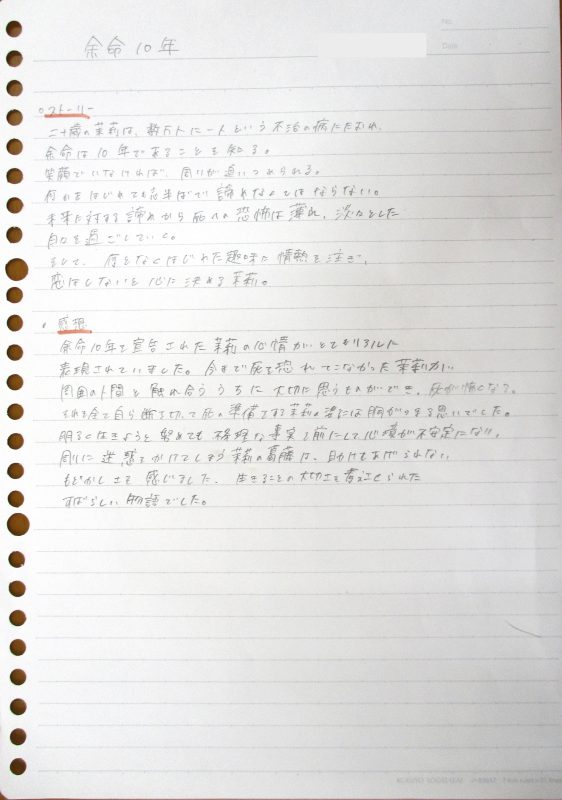 余命10年
No.
Date
○ストーリー
二十歳の茉莉は、数万人に一人という不治の病にたおれ、
余命は10年であることを知る。
笑顔でいなければ、周りが追いつめられる。
何かをはじめても志半ばで諦めなくてはならない。
未来に対する諦めから死への恐怖は薄れ、淡々とした
日々を過ごしていく。
そして、何となくはじめた趣味に情熱を注ぎ、
恋はしないと心に決める茉莉。
感想
余命10年を宣告された茉莉の心情がとてもリアルに
表現されていました。今まで死を恐れてこなかった茉莉が
周囲の人間と触れ合ううちに大切に思うものができ、死が怖くなる。
それを全て自ら断ち切って死の準備をする茉莉の姿には胸がつまる思いでした。
明るく生きようと努めても不条理な事実を前にして心情が不安定になり、
周りに迷惑をかけてしまう茉莉の葛藤は、助けてもあげられない
もどかしさを感じました。生きることの大切さを考えさせられた
すばらしい物語でした。